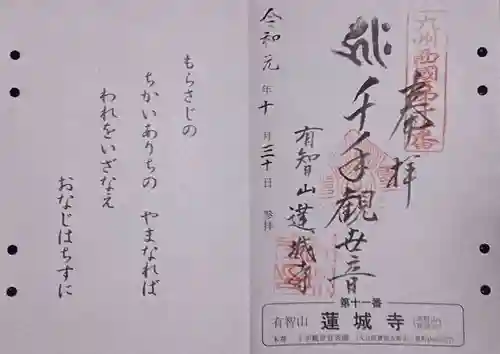 九州西國第十一番
奉拝
千手觀世音
有智山蓮城寺
令和元年十月三十日 参拝
第十一番
有智山 蓮城寺
もらさじの
ちかいありちの やまなれば
われをいざなえ
おなじはちすに